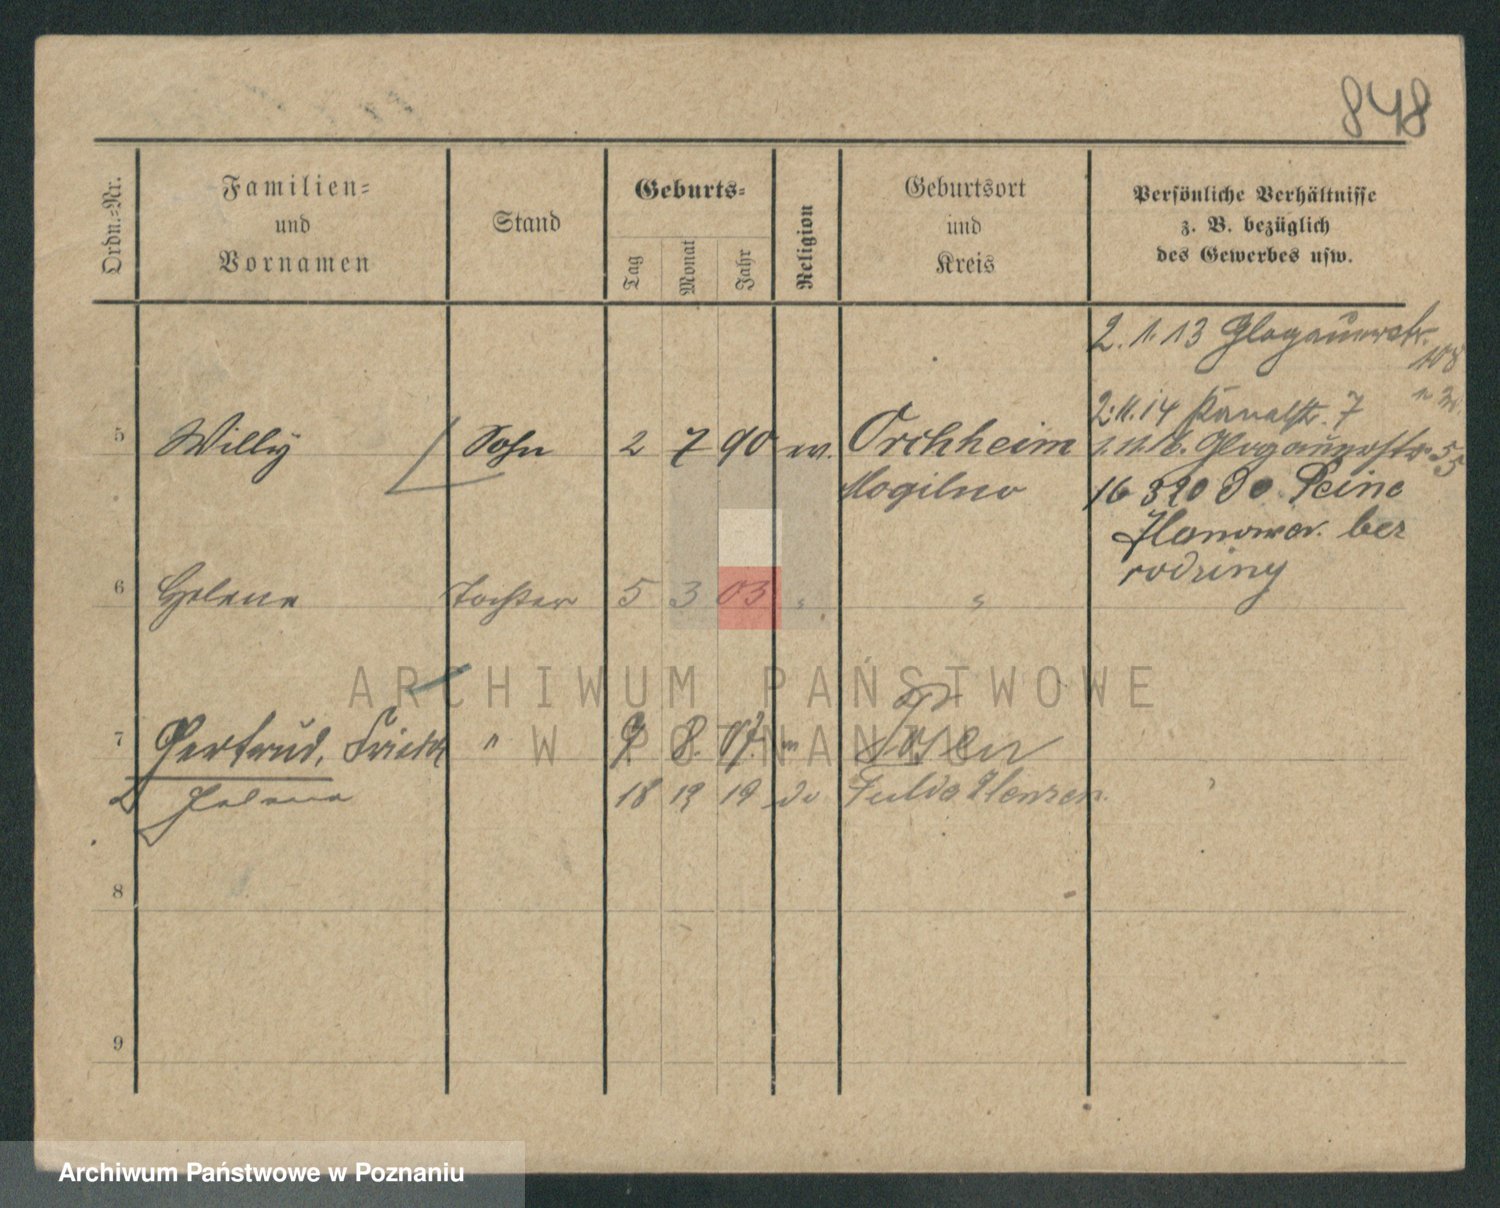 848
Ordn.-Nr.
Familien-
und
Vornamen
Stand
Geburts-
Tag
Monat
Jahr
Religion
Geburtsort
und
Kreis
Persönliche Verhältnisse
z. B. bezüglich
des Gewerbes usw.
2. 1. 13 Glogauerstr.
108
2. 11. 14 Kanalstr. 7
5 Willy Sohn 2 7 90 ev. Orchheim Glogauerstr. 55
Mogilno 16 3 20 do Peine
Hanower. bez
rodziny
6 Helene Tochter 5 3 03 " "
ARCHIWUM PAŃSTWOWE
W POZNANIU
7 Gertrud, Frieda " 9 8. 07. Posen
Helene 18 12 19 do Fulda
8
9
Archiwum Państwowe w Poznaniu